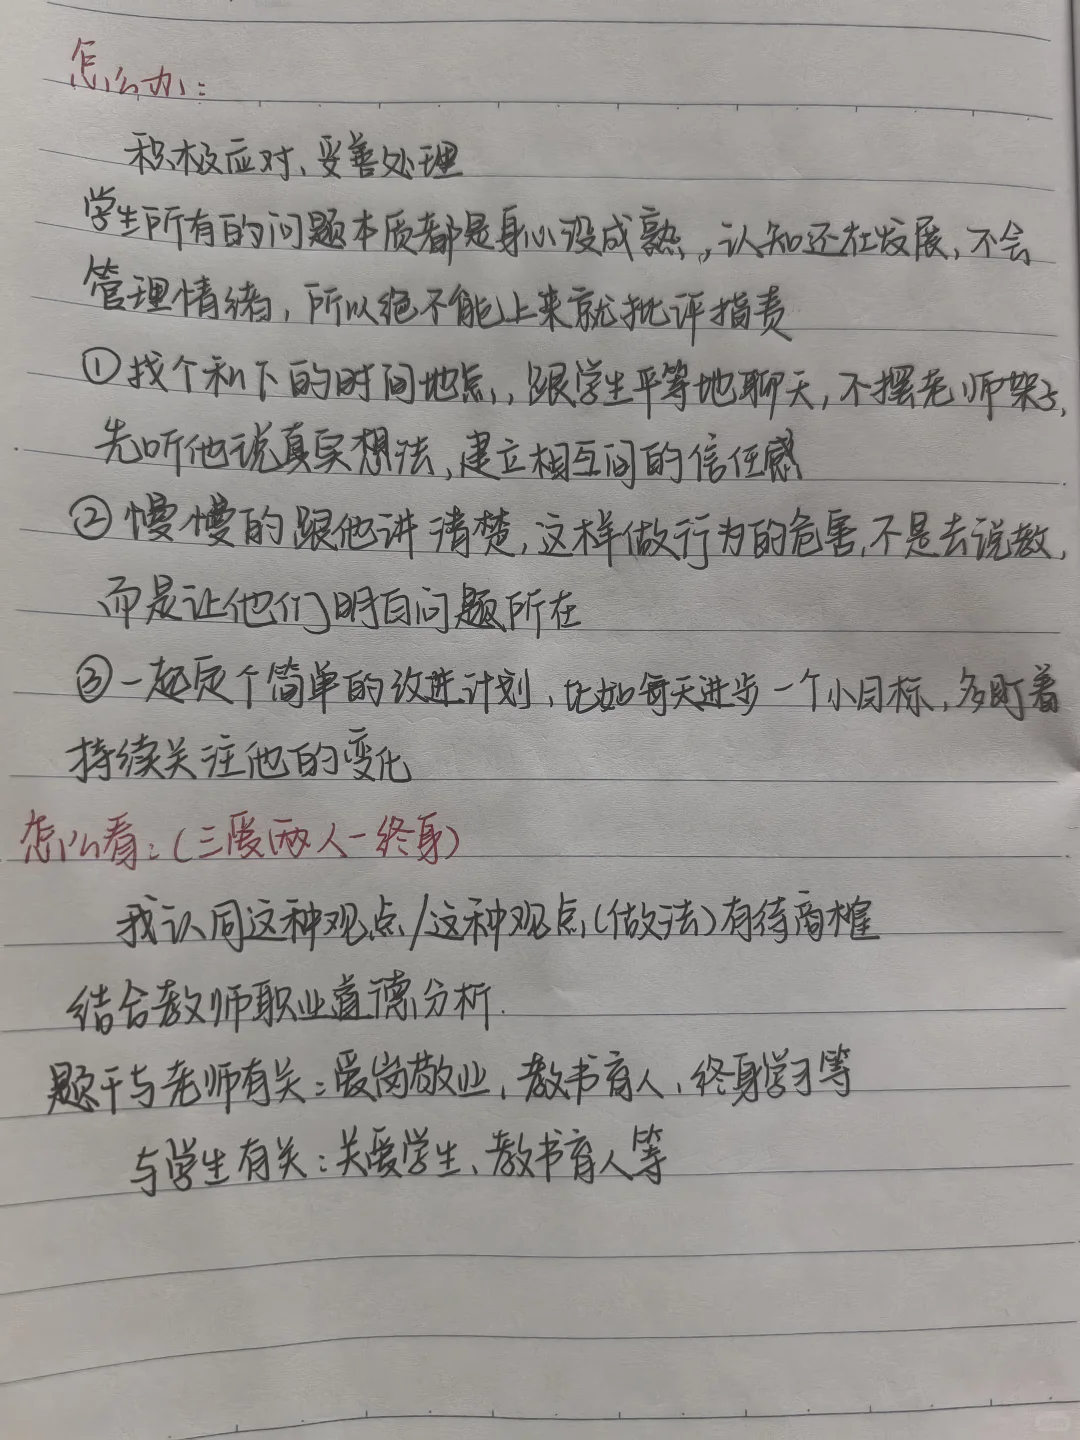 怎么办：
积极应对、妥善处理
学生所有的问题本质都是身心没成熟，认知还在发展，不会
管理情绪，所以绝不能上来就批评指责
①找个私下的时间地点，跟学生平等地聊天，不摆老师架子，
先听他说真实想法，建立相互间的信任感
②慢慢的跟他讲清楚，这样做行为的危害，不是去说教，
而是让他们明白问题所在
③一起定个简单的改进计划，比如每天进步一个小目标，多盯着
持续关注他的变化
怎么看：（三爱两人一终身）
我认同这种观点/这种观点（做法）有待商榷
结合教师职业道德分析.
题干与老师有关：爱岗敬业、教书育人、终身学习等
与学生有关：关爱学生、教书育人等